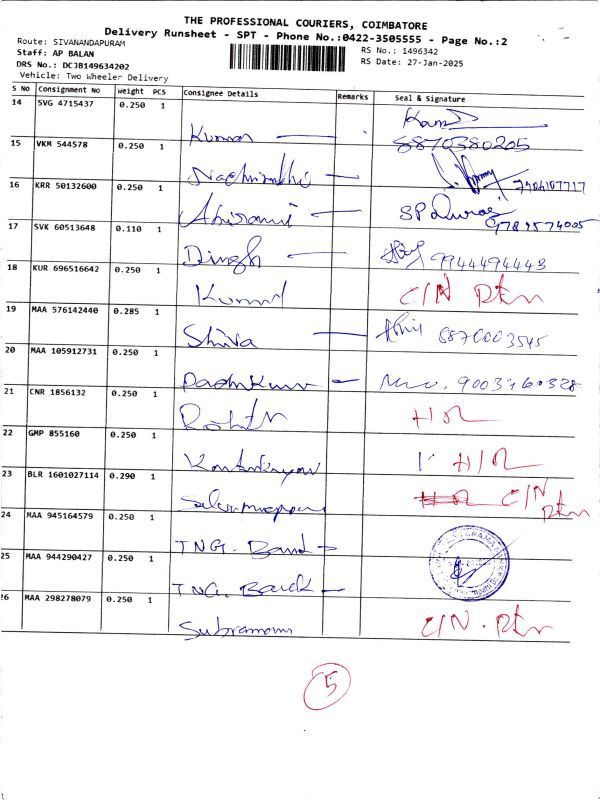 THE PROFESSIONAL COURIERS, COIMBATORE
Delivery Runsheet - SPT - Phone No.:0422-3505555 - Page No.:2
Route: SIVANANDAPURAM
Staff: AP BALAN
DRS No.: DCJB149634202
Vehicle: Two Wheeler Delivery
RS No.: 1496342
RS Date: 27-Jan-2025
S No Consignment No Weight PCS Consignee Details Remarks Seal & Signature
14 SVG 4715437 0.250 1 Kumar
15 VKM 544578 0.250 1
16 KRR 50132600 0.250 1 Abirami
17 SVK 60513648 0.110 1 Dinesh 9944494443
18 KUR 696516642 0.250 1 Kumar C/N Rtn
19 MAA 576142440 0.285 1 Shiva
20 MAA 105912731 0.250 1
21 CNR 1856132 0.250 1 Rohith
22 GMP 855160 0.250 1
23 BLR 1601027114 0.290 1 C/N Rtn
24 MAA 945164579 0.250 1 TNG. Band
25 MAA 944290427 0.250 1 TNG. Bank
26 MAA 298278079 0.250 1 Subramani C/N. Rtn
5